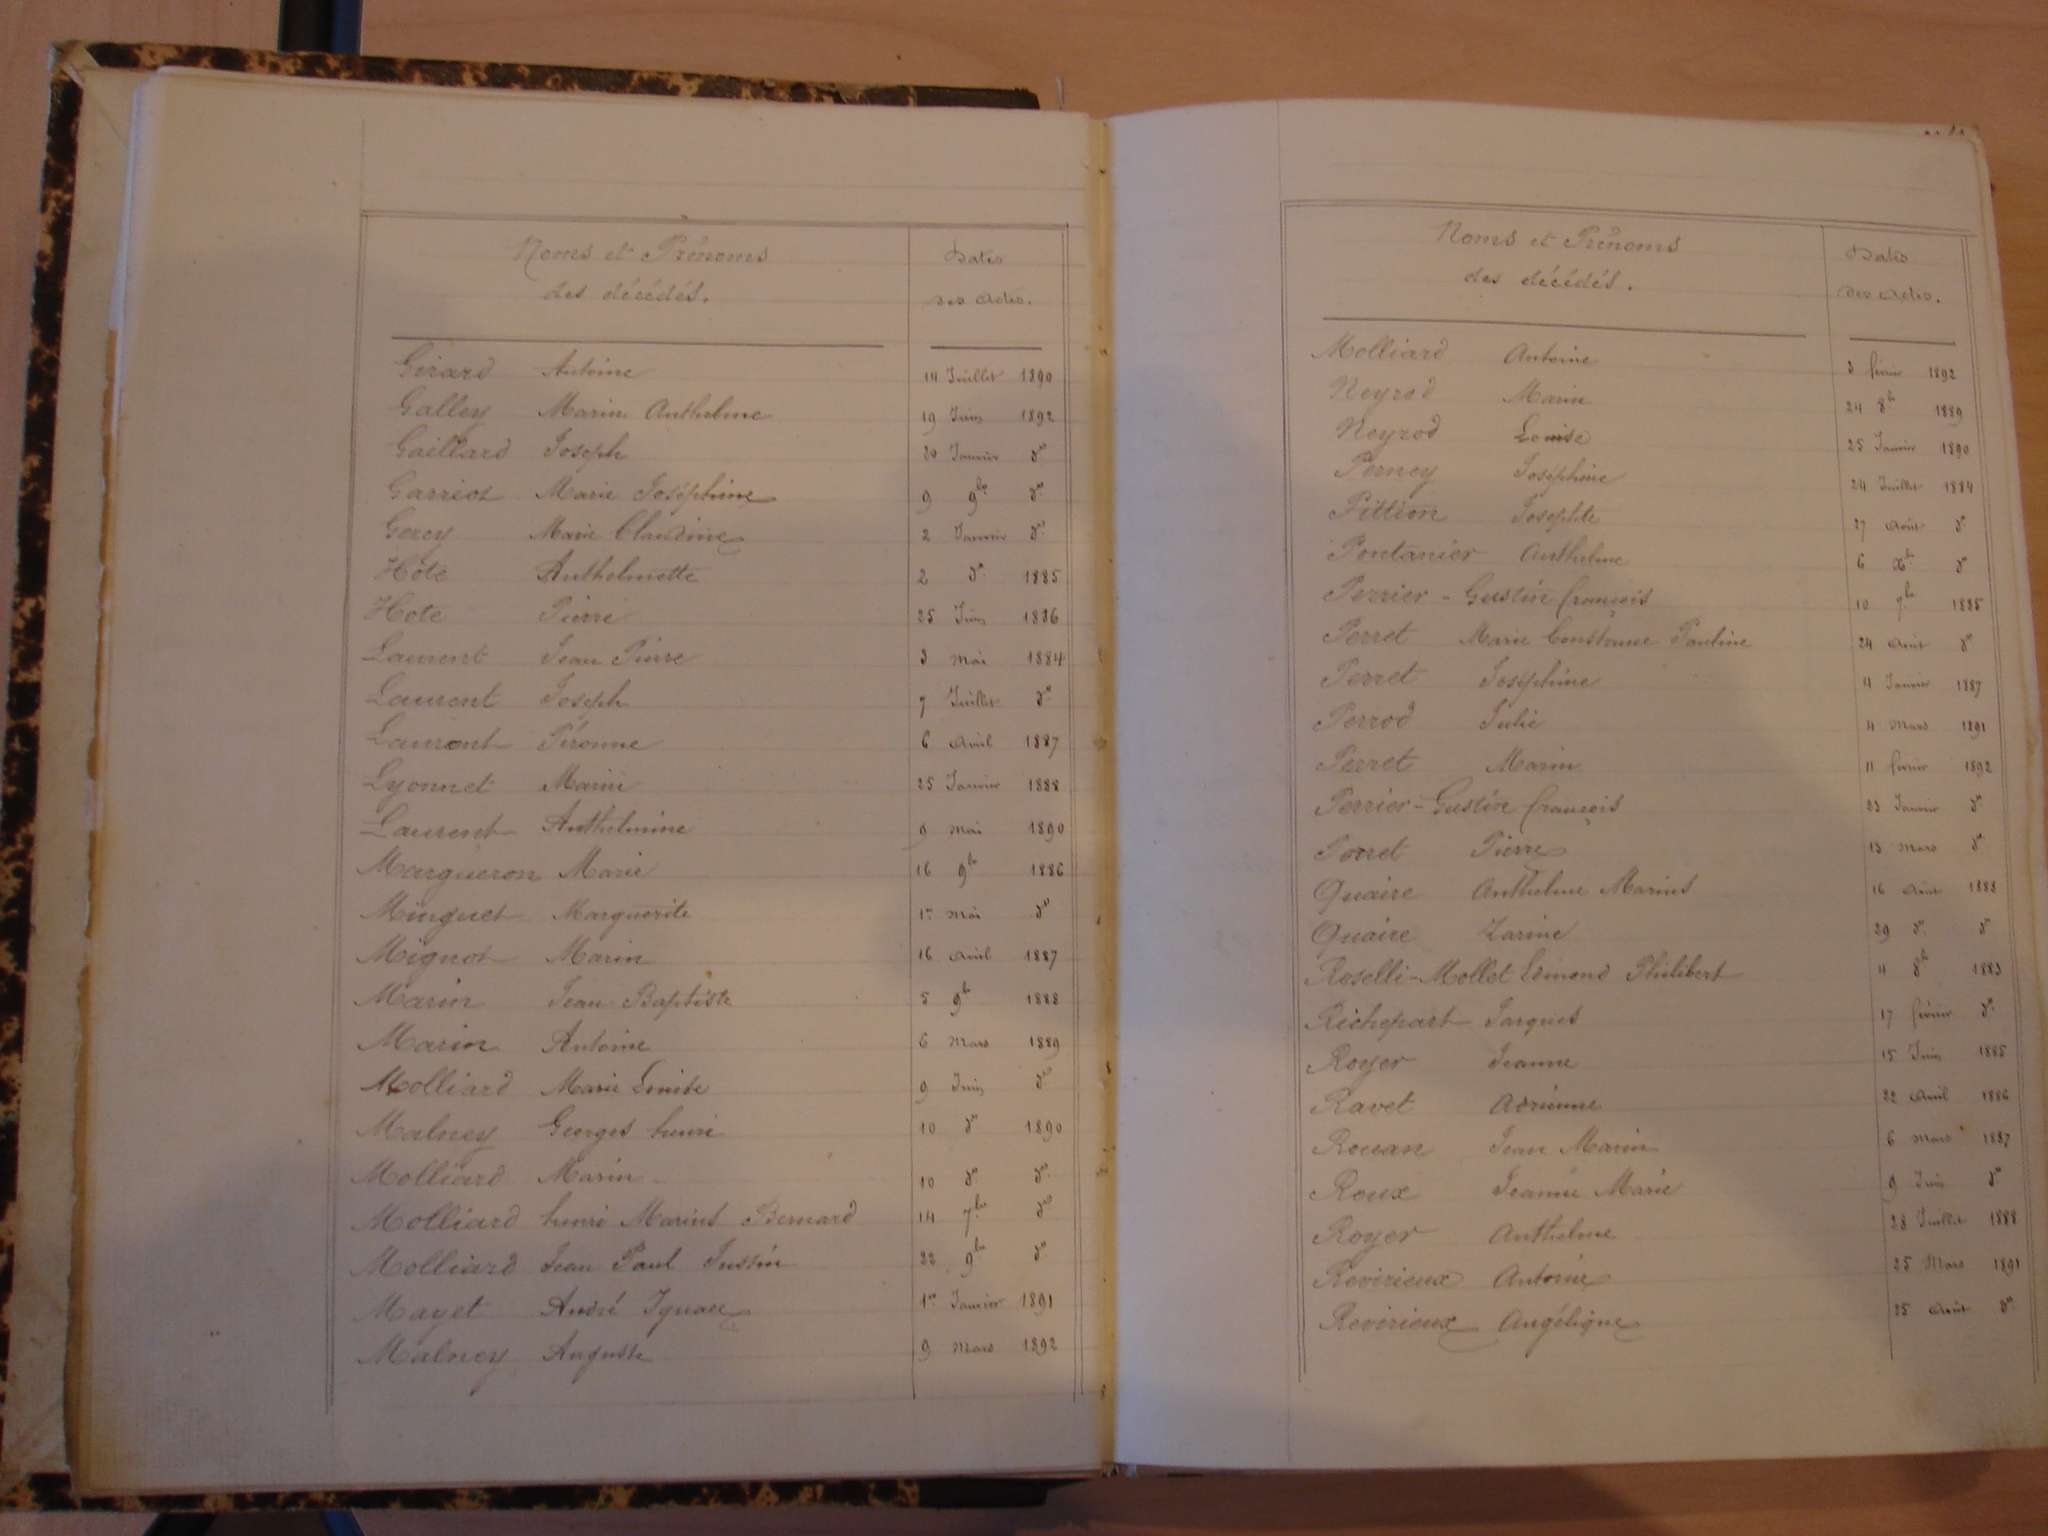 Noms et Prénoms
des décédés.
Dates
des actes.
Girard Antoine 14 Juillet 1890
Galley Marin Anthelme 19 Juin 1892
Gaillard Joseph 20 Janvier do
Garriot Marie Joséphine 9 9bre do
Gerey Marie Claudine 2 Janvier do
Hote Anthelmette 2 do 1885
Hote Pierre 25 Juin 1886
Laurent Jean Pierre 3 mai 1884
Laurent Joseph 7 Juillet do
Laurent Péronne 6 avril 1887
Lyonnet Marin 25 Janvier 1888
Laurent Anthelmine 9 mai 1890
Margueron Marie 16 9bre 1886
Minguet Marguerite 1er mai do
Mignot Marin 16 avril 1887
Marin Jean Baptiste 5 9bre 1888
Marin Antoine 6 mars 1889
Molliard Marie Louise 9 Juin do
Malney Georges henri 10 do 1890
Molliard Marin 10 do do
Molliard henri Marius Bernard 14 7bre do
Molliard Jean Paul Justin 22 9bre do
Mayet André Ignace 1er Janvier 1891
Malney Auguste 9 mars 1892
Noms et Prénoms
des décédés.
Dates
des actes.
Molliard Antoine 3 février 1892
Neyrod Marin 24 8bre 1889
Neyrod Louise 25 Janvier 1890
Perney Joséphine 24 Juillet 1884
Pittion Josephte 27 août do
Pontanier Anthelme 6 xbre do
Perrier-Gustin françois 10 7bre 1885
Perret Marie Constance Pauline 24 août do
Perret Joséphine 4 Janvier 1887
Perrod Julie 4 mars 1891
Perret Marin 11 février 1892
Perrier-Gustin françois 23 Janvier do
Perret Pierre 13 mars do
Quaire Anthelme Marius 16 août 1883
Quaire Zarine 29 do do
Roselli-Mollet Edmond Philibert 4 8bre 1883
Richepart Jacques 17 février do
Royer Jeanne 15 Juin 1885
Ravet Adrienne 22 avril 1886
Rouan Jean Marin 6 mars 1887
Roux Jeanne Marie 9 Juin do
Royer Anthelme 28 Juillet 1888
Revirieux Antoine 25 Mars 1891
Revirieux Angélique 25 août do